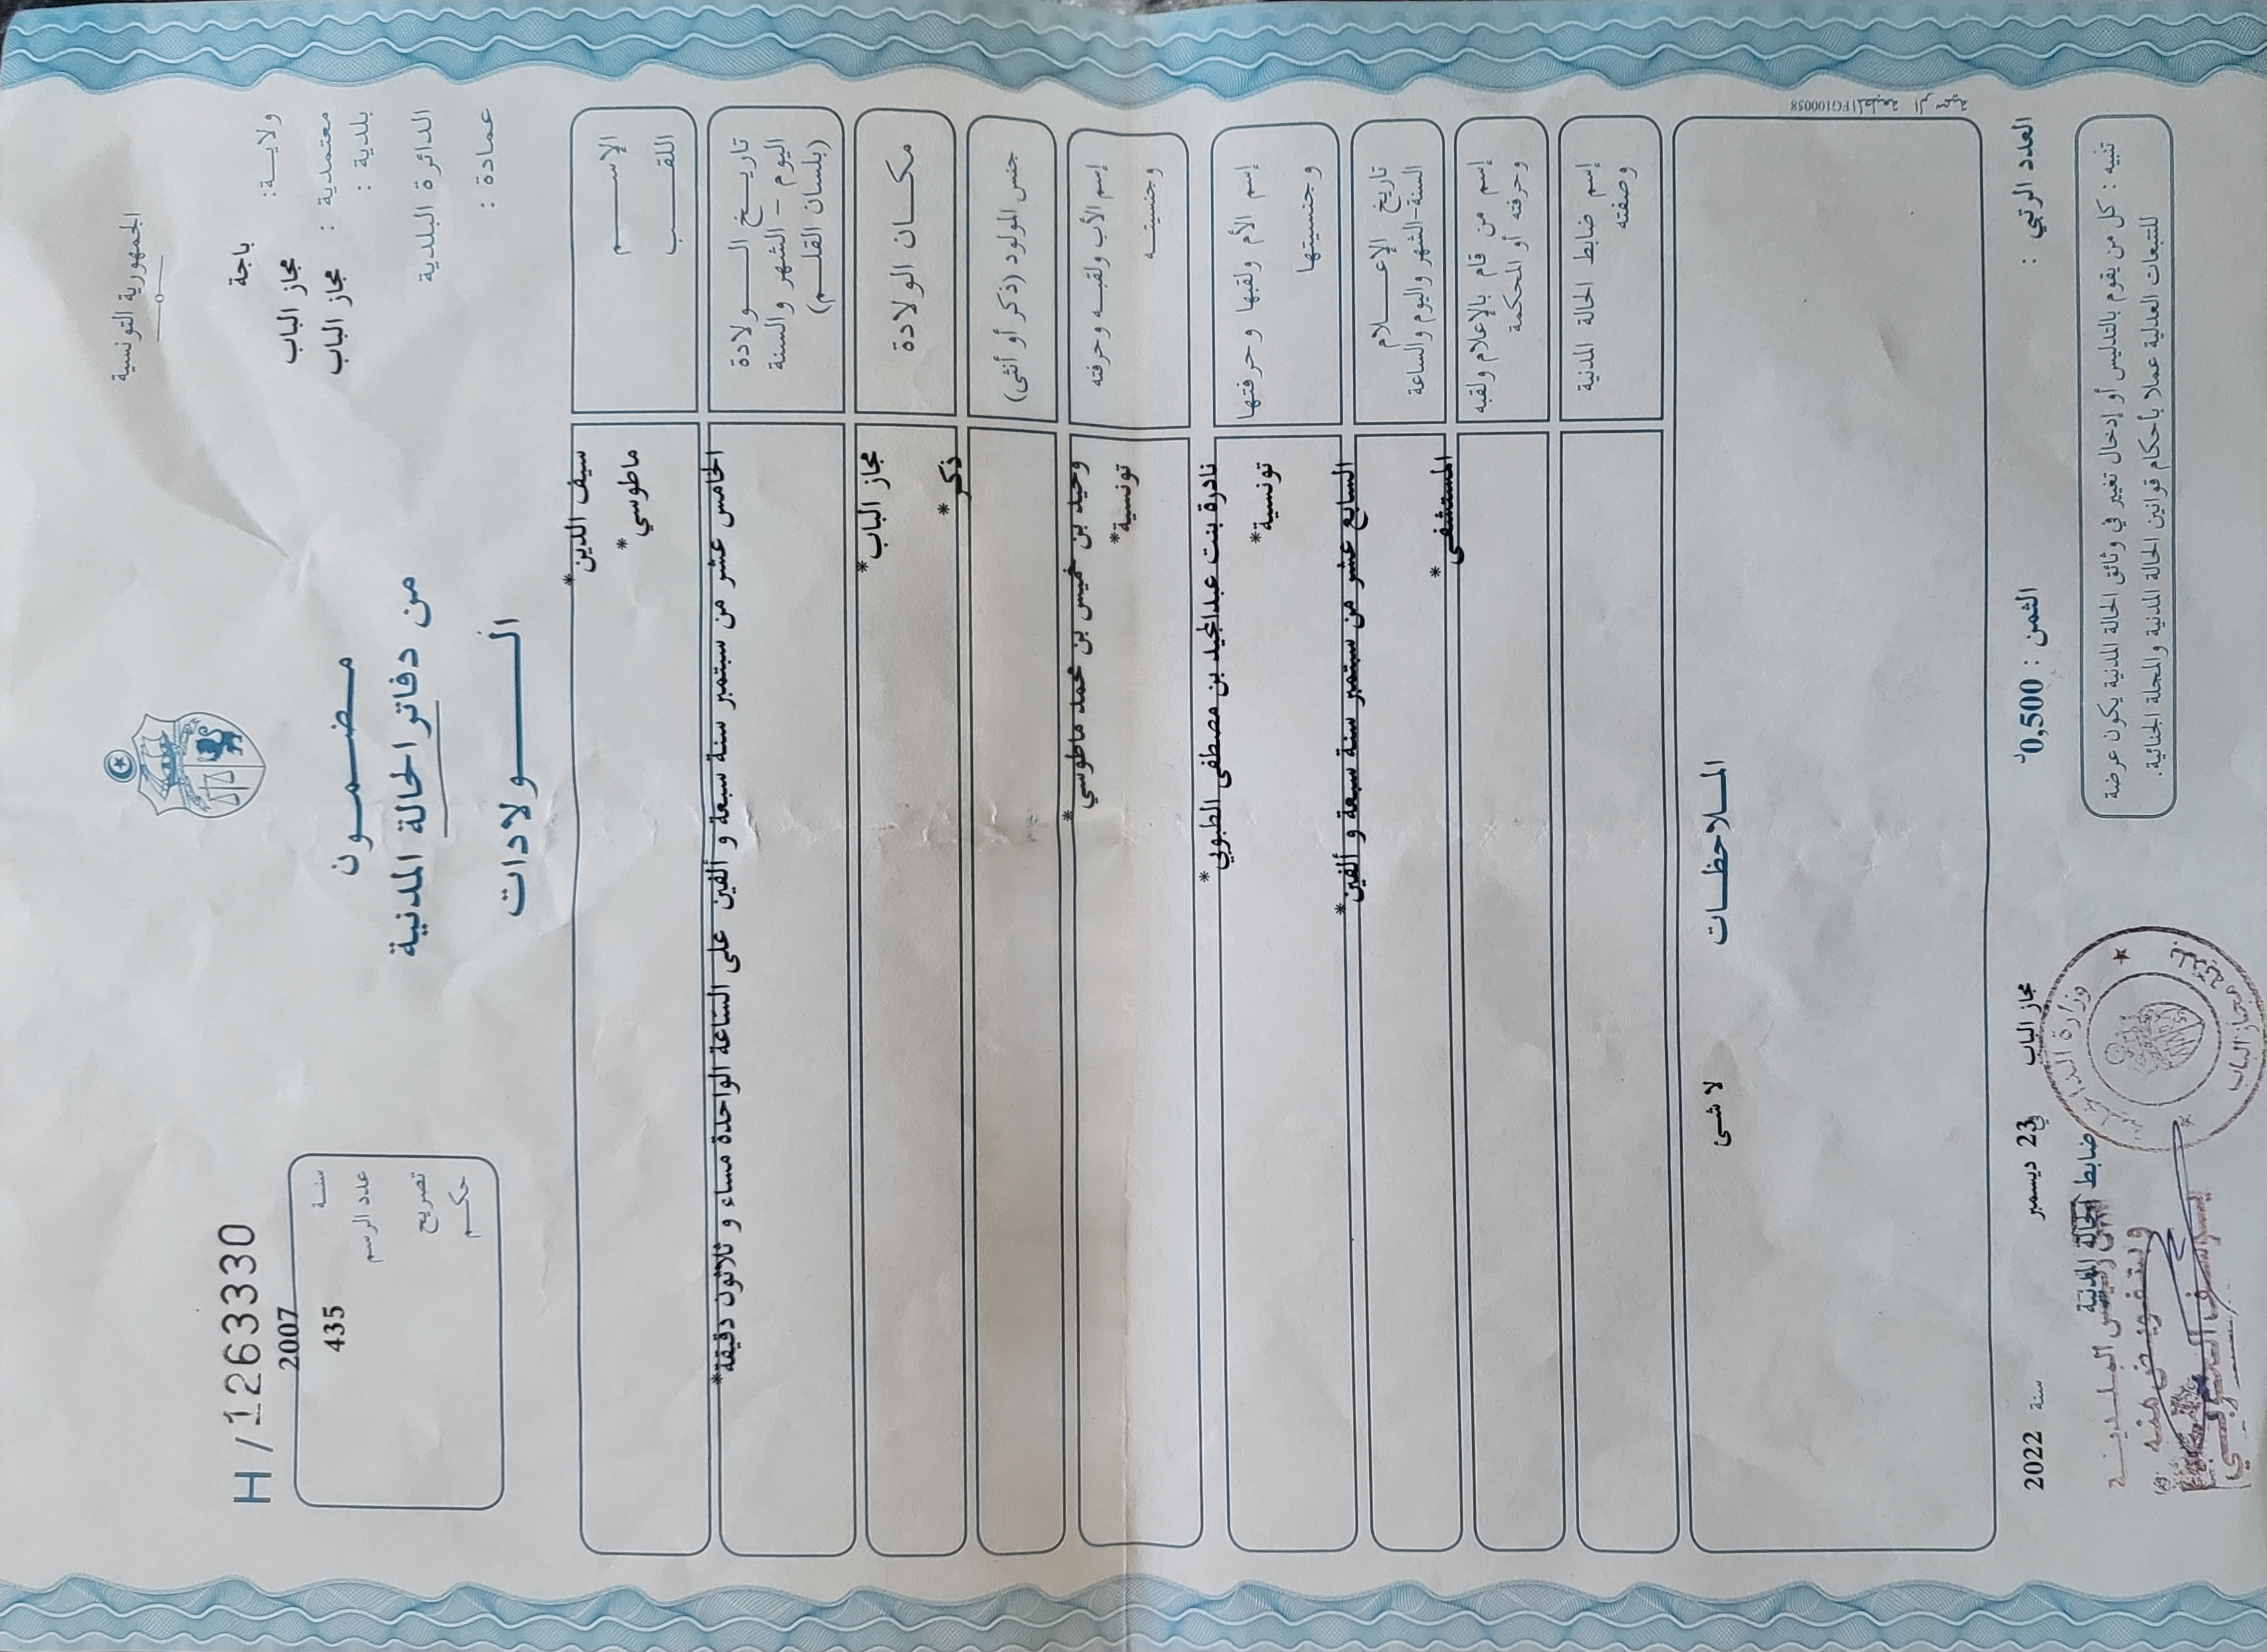 الجمهورية التونسية
H / 1263330
ولاية : باجة
معتمدية : مجاز الباب
بلدية : مجاز الباب
الدائرة البلدية
عمادة :
مضمون
من دفاتر الحالة المدنية
الولادات
سنة 2007
عدد الرسم 435
تصريح
حكم
الإسم سيف الدين*
اللقب ماطوسي*
تاريخ الولادة
اليوم - الشهر والسنة
(بلسان القلم)
الخامس عشر من سبتمبر سنة سبعة و ألفين على الساعة الواحدة مساء و ثلاثون دقيقة*
مكان الولادة مجاز الباب*
جنس المولود (ذكر أو أنثى) ذكر*
إسم الأب ولقبه وحرفته وحيد بن خميس بن محمد ماطوسي*
وجنسيته تونسية*
إسم الأم ولقبها وحرفتها نادرة بنت عبدالمجيد بن مصطفى الطبوبي*
وجنسيتها تونسية*
تاريخ الإعلام
السنة-الشهر واليوم والساعة
السابع عشر من سبتمبر سنة سبعة و ألفين*
إسم من قام بالإعلام ولقبه
وحرفته أو المحكمة
المستشفى*
إسم ضابط الحالة المدنية
وصفته
الملاحظات
لا شئ
المطبعة الرسمية FG100058
العدد الرتبي :
الثمن : 0,500د
مجاز الباب في 23 ديسمبر سنة 2022
ضابط الحالة المدنية
تنبيه : كل من يقوم بالتدليس أو إدخال تغيير في وثائق الحالة المدنية يكون عرضة
للتتبعات العدلية عملا بأحكام قوانين الحالة المدنية والمجلة الجنائية.
وزارة الداخلية
مجاز الباب
رئيس البلدية
وبتفويض منه